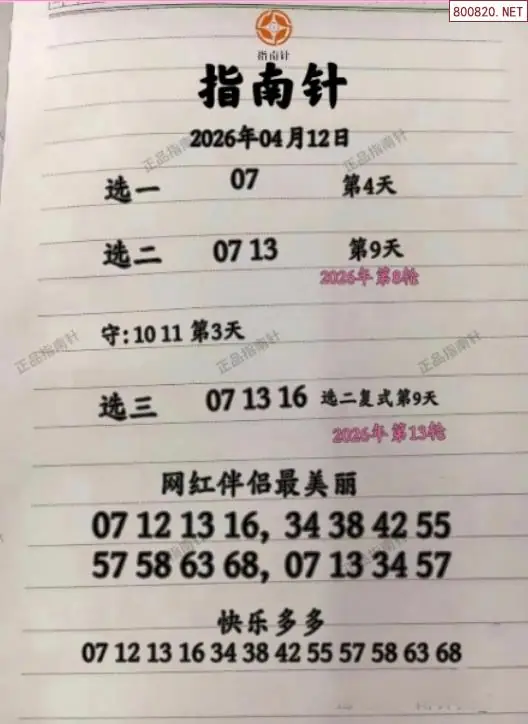 800820.NET
指南针
指南针
2026年04月12日
正品指南针 正品指南针
选一 07 第4天
选二 07 13 第9天
2026年第8轮
守:10 11 第3天
正品指南针 正品指南针 正品指南针
选三 07 13 16 选二复式第9天
2026年第13轮
网红伴侣最美丽
07 12 13 16, 34 38 42 55
57 58 63 68, 07 13 34 57
正品指南针 正品指南针
快乐多多
07 12 13 16 34 38 42 55 57 58 63 68